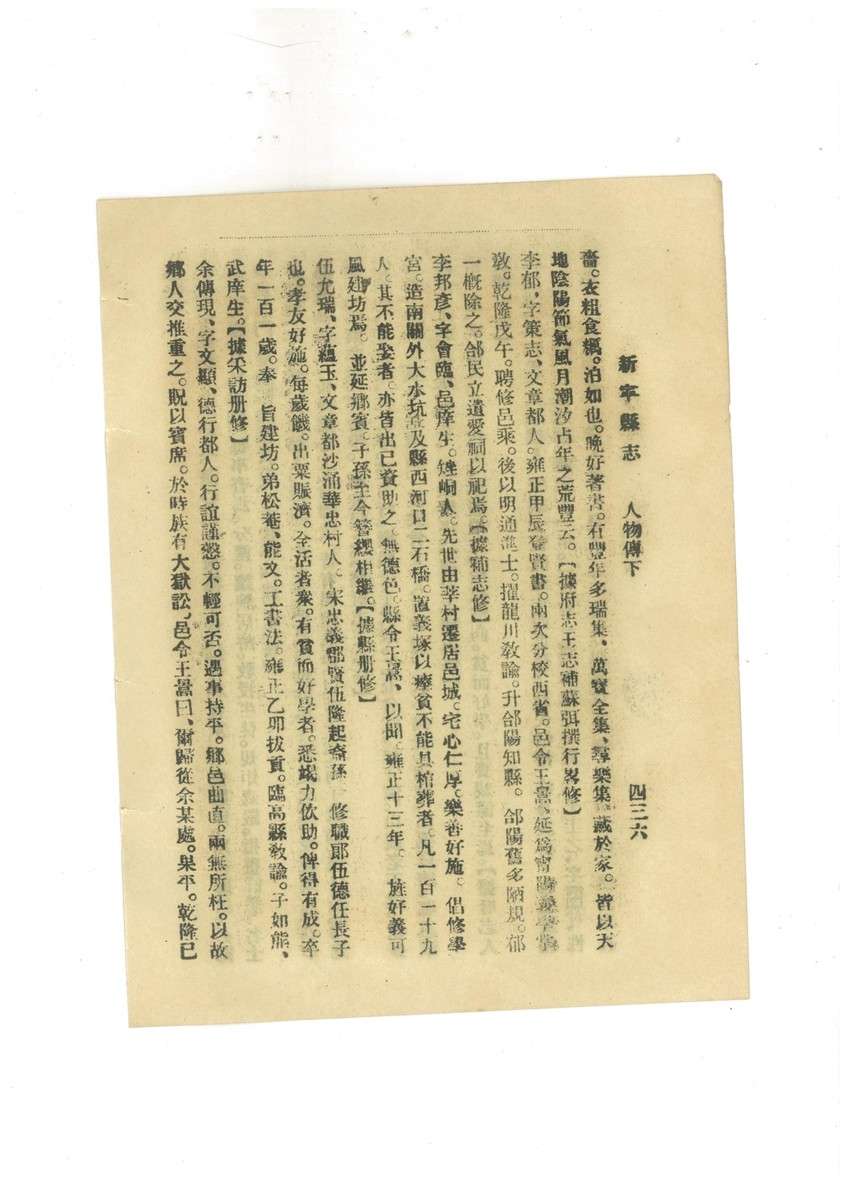 新寧縣志　人物傳下　四三六
嗇。衣粗食糲。泊如也。晚好著書。有豐年多瑞集、萬寶全集、尋樂集、藏於家。皆以天
地陰陽節氣風月潮汐占年之荒豐云。【據府志王志補蘇弭撰行畧修】
李郁，字策志、文章都人。雍正甲辰登賢書。兩次分校西省。邑令王暠、延爲寗陽義學掌
教。乾隆戊午。聘修邑乘。後以明通進士。擢龍川教諭。升郃陽知縣。郃陽舊多陋規。郁
一槪除之。郃民立遺愛祠以祀焉。【據補志修】
李邦彥、字會臨、邑庠生。矬峒人。先世由莘村遷居邑城。宅心仁厚。樂善好施。倡修學
宮。造南關外大水坑及縣西河口二石橋。置義塚以瘞貧不能具棺葬者。凡一百一十九
人。其不能娶者。亦皆出己資助之。無德色。縣令王暠、以聞。雍正十三年。旌好義可
風建坊焉。並延鄉賓。子孫至今簪纓相繼。【據縣册修】
伍允瑞、字蘊玉、文章都沙涌華忠村人。宋忠義鄉賢伍隆起裔孫。修職郎伍德任長子
也。孝友好施。每歲饑。出粟賑濟。全活者衆。有貧而好學者。悉竭力佽助。俾得有成。卒
年一百一歲。奉　旨建坊。弟松菴、能文。工書法。雍正乙卯拔貢。臨高縣教諭。子如熊、
武庠生。【據采訪册修】
余傳現、字文顯、德行都人。行誼謹慤。不輕可否。遇事持平。鄉邑曲直。兩無所枉。以故
鄉人交推重之。貺以賓席。於時族有大獄訟。邑令王暠曰、爾歸從余某處。果平。乾隆己